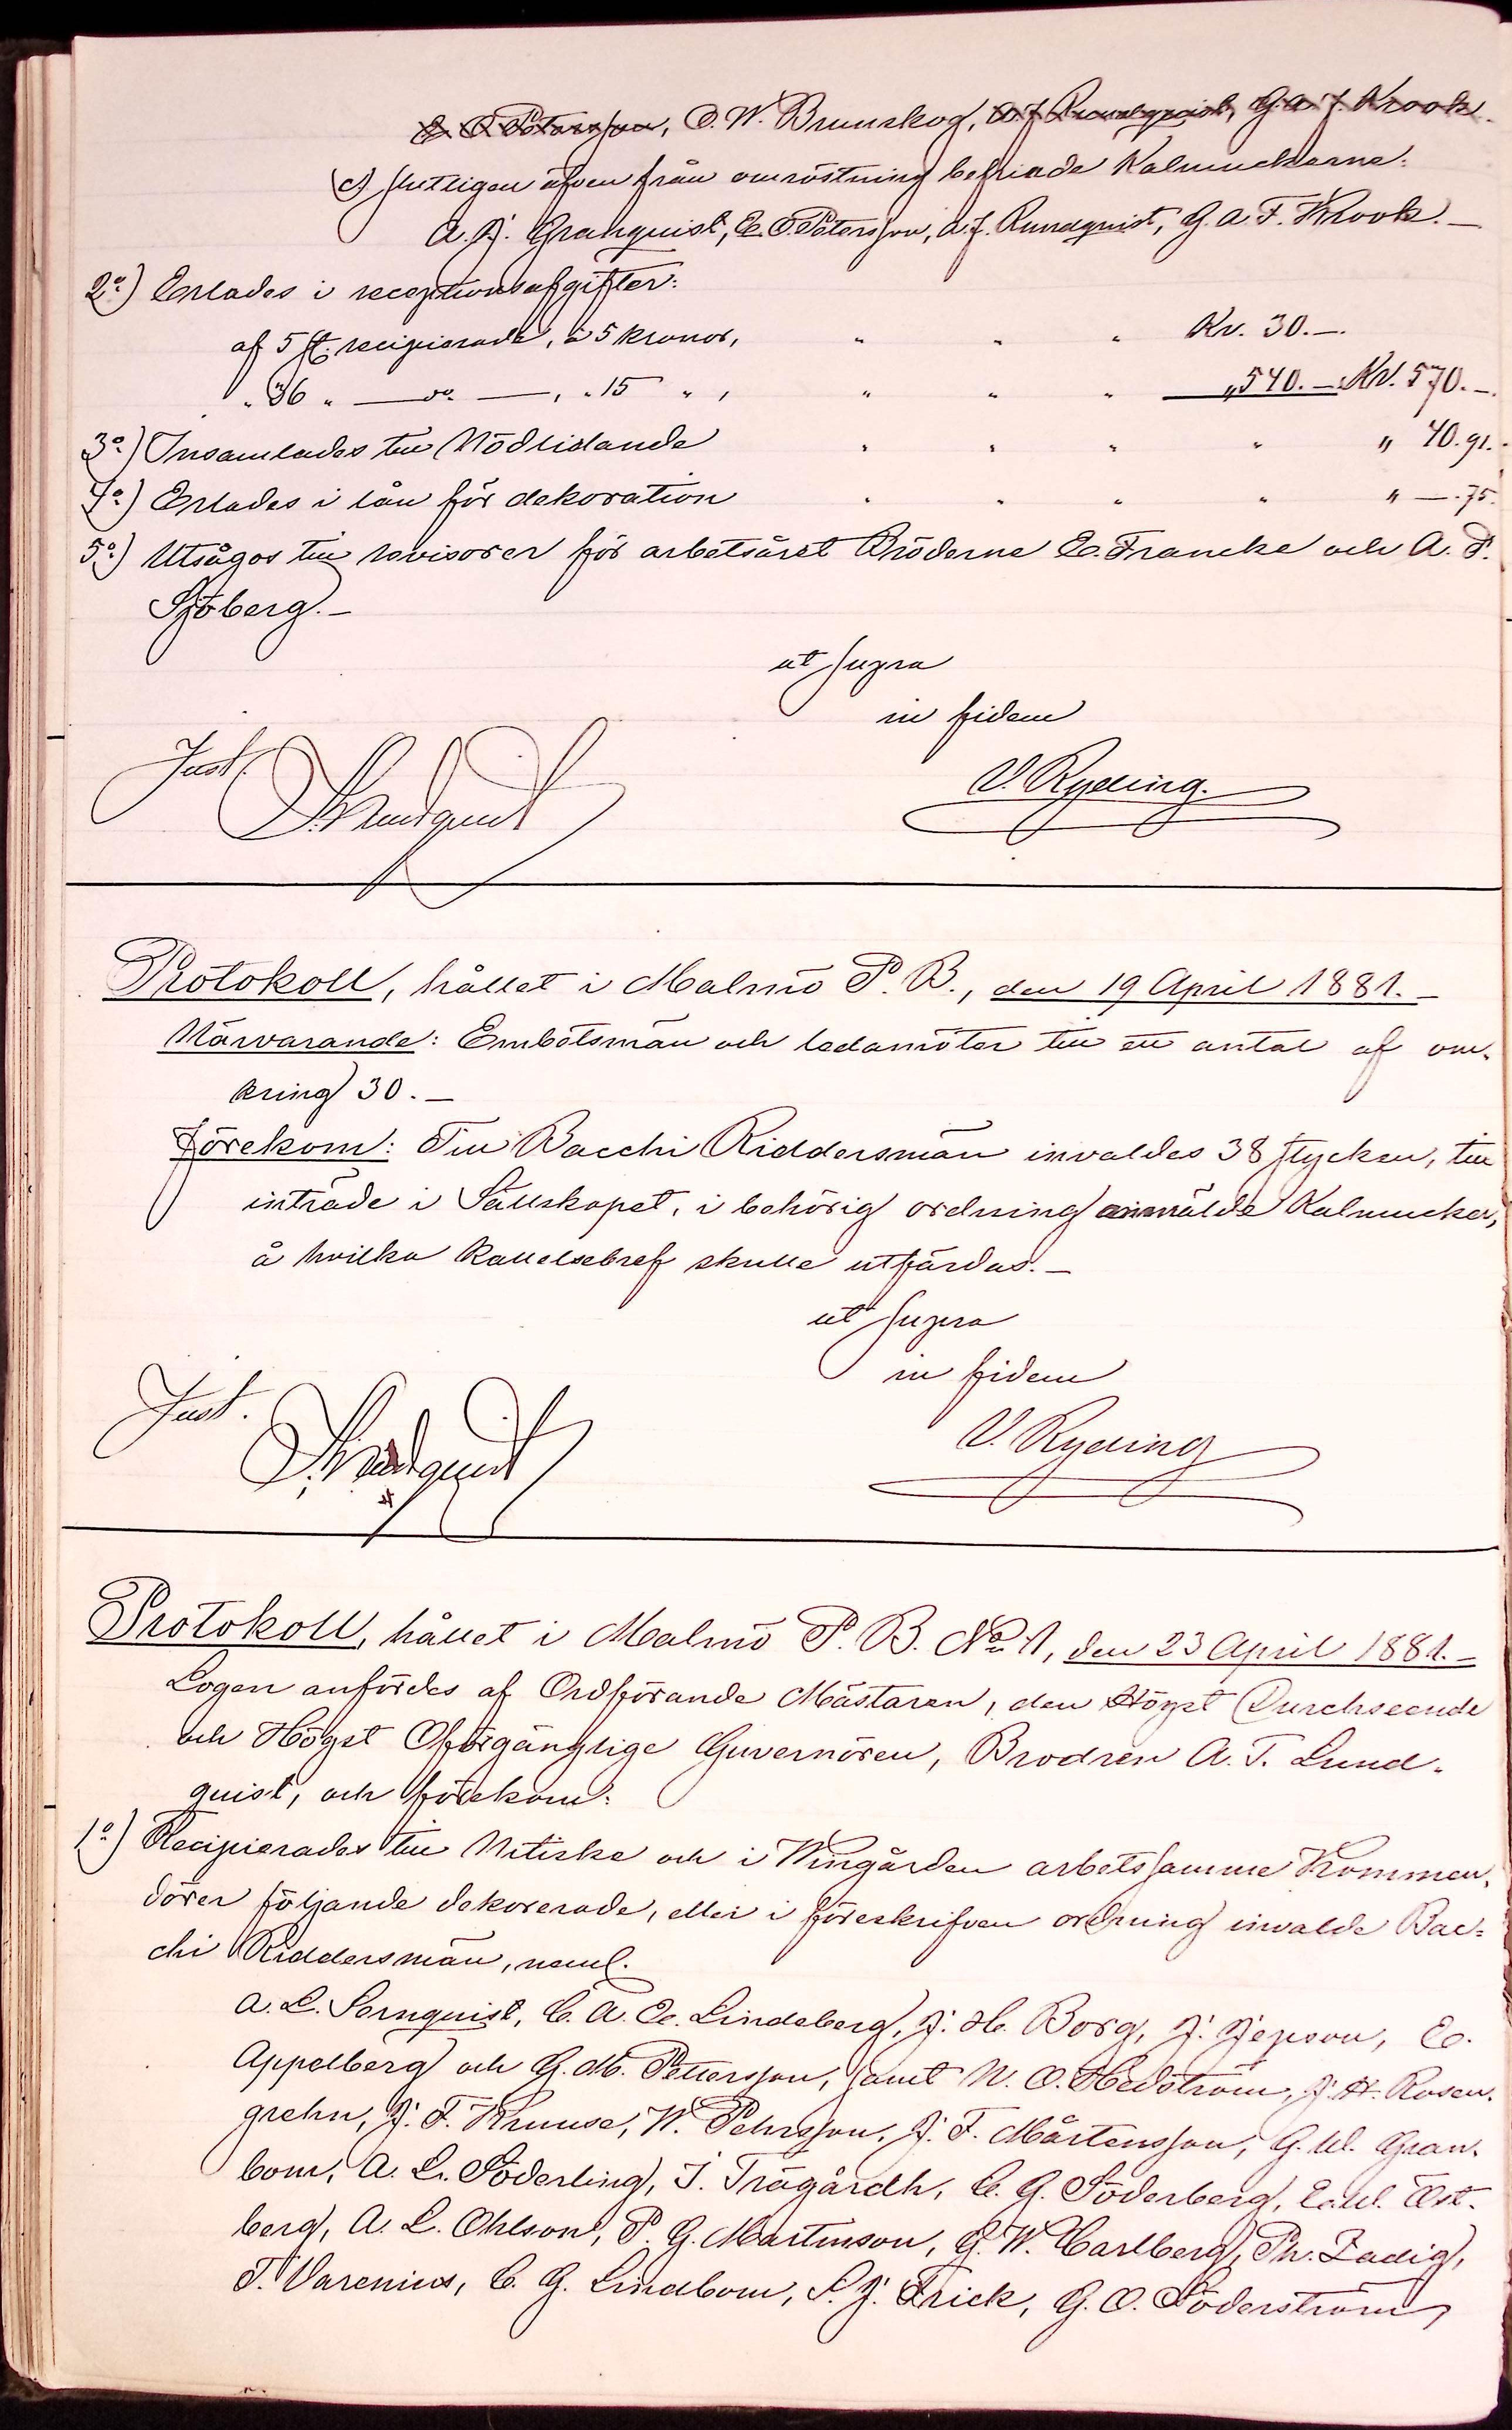 E. O. Petersson, O. W. Brunskog, A. J. Rundquist, G. A. F. Krook.
c) slutligen äfven från omröstning befriade Kalmuckarne:
A. J. Granquist, E. O. Petersson, A. J. Rundquist, G. A. F. Krook. —
2º) Erlades i receptionsafgifter:
af 5 st. recipierade, à 5 kronor, " " " Kr. 30.—.
" 36 " — do — , " 15 " , " " " " 540.— Kr. 570.—.
3º) Insamlades till Nödlidande " " " " " 40.91.
4º) Erlades i lån för dekoration " " " " " —.75.
5º) Utsågos till revisorer för arbetsåret Bröderne E. Francke och A. P.
Sjöberg. —
ut supra
in fidem
Just.
V. Ryding.
Protokoll, hållet i Malmö P. B., den 19 April 1881. —
Närvarande: Embetsmän och ledamöter till ett antal af om-
kring 30. —
Förekom: Till Bacchi Riddersmän invaldes 38 stycken, till
inträde i Sällskapet, i behörig ordning anmälde Kalmucker,
å hvilka Kallelsebref skulle utfärdas. —
ut supra
in fidem
Just.
V. Ryding
Protokoll, hållet i Malmö P. B. No 1, den 23 April 1881. —
Logen anfördes af Ordförande Mästaren, den Högst Durchseende
och Högst Oförgänglige Guvernören, Brodren A. T. Lund-
quist, och förekom:
1º) Recipierades till Nitiske och i Wingården arbetssamme Kommen-
dörer följande dekorerade, eller i föreskrifven ordning invalde Bac-
chi Riddersmän, neml.
A. L. Sernquist, C. A. E. Lindeberg, J. H. Borg, J. Jepson, E.
Appelberg och G. M. Pettersson, samt N. O. Hedström, J. H. Rosen-
grehn, J. F. Kruuse, W. Pehrsson, J. F. Mårtensson, G. W. Gran-
bom, A. L. Söderling, J. Trägårdh, C. G. Söderberg, E. W. Öst-
berg, A. L. Ohlson, P. G. Martinson, G. W. Carlberg, Ph. Zadig,
T. Varenius, C. G. Lindbom, S. J. Frick, G. O. Söderström,